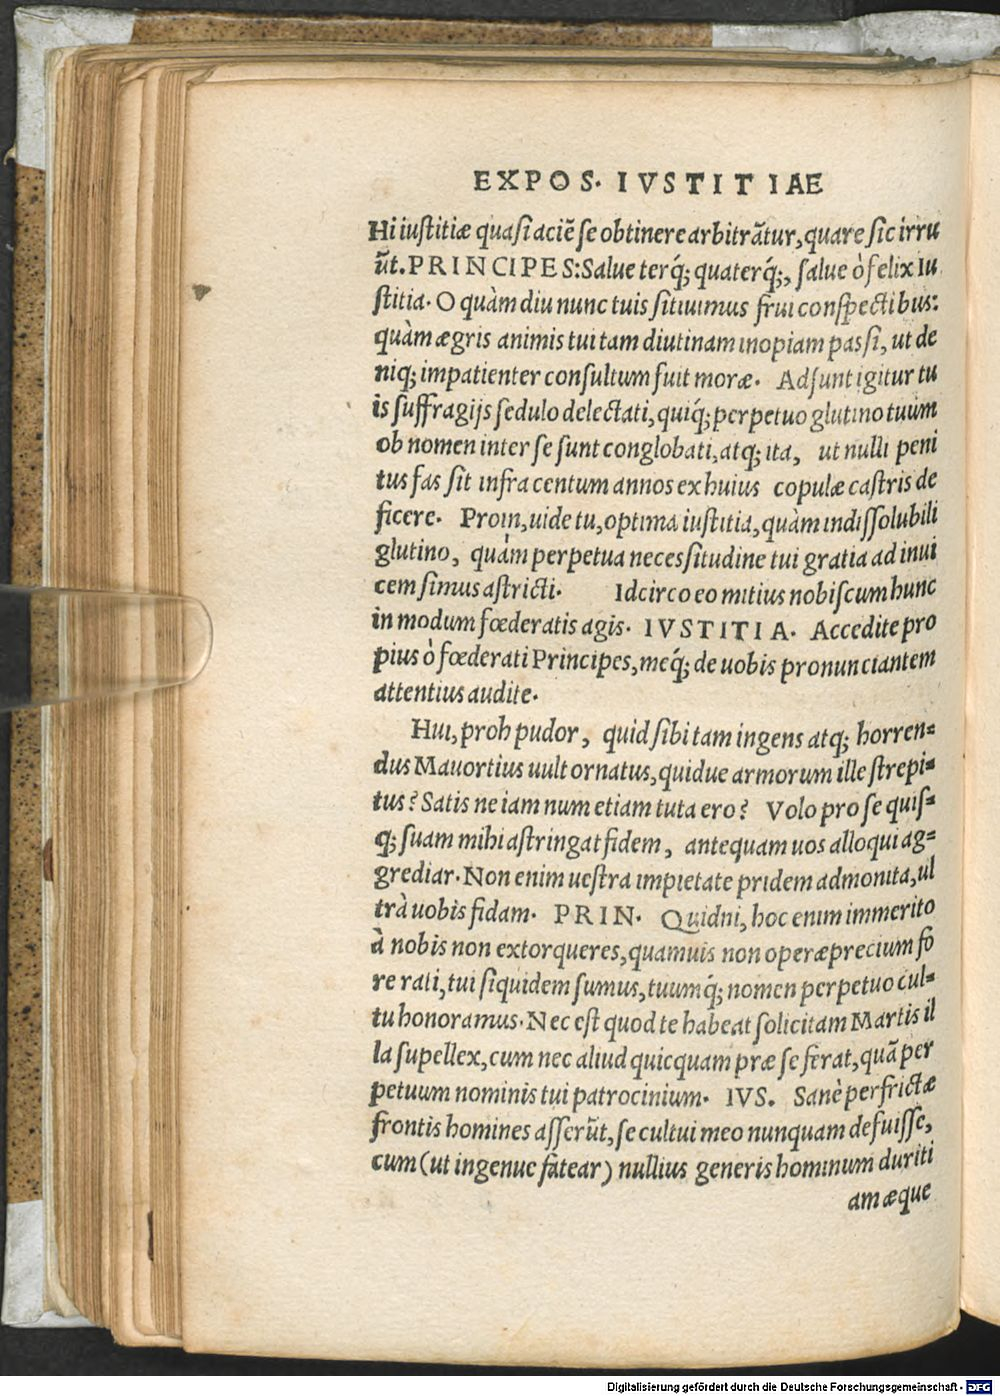 EXPOS. IVSTITIAE
Hi iuſtitiæ quaſi aciẽ ſe obtinere arbitrãtur, quare ſic irru
ũt. PRINCIPES: Salue terq́; quaterq́;, ſalue ò felix Iu
ſtitia. O quàm diu nunc tuis ſitiuimus frui conſpectibus:
quàm ægris animis tui tam diutinam inopiam paſsi, ut de
niq; impatienter conſultum fuit moræ. Adſunt igitur tu
is ſuffragijs ſedulo delectati, quiq́; perpetuo glutino tuum
ob nomen inter ſe ſunt conglobati, atq; ita, ut nulli peni
tus fas ſit infra centum annos ex huius copulæ caſtris de
ficere. Proin, uide tu, optima iuſtitia, quàm indiſſolubili
glutino, quàm perpetua neceſsitudine tui gratia ad inui
cem ſimus aſtricti. Idcirco eo mitius nobiſcum hunc
in modum fœderatis agis. IVSTITIA. Accedite pro
pius ò fœderati Principes, meq́; de uobis pronunciantem
attentius audite.
Hui, proh pudor, quid ſibi tam ingens atq; horren=
dus Mauortius uult ornatus, quidue armorum ille ſtrepi=
tus? Satis ne iam num etiam tuta ero? Volo pro ſe quiſ=
q; ſuam mihi aſtringat fidem, antequam uos alloqui ag=
grediar. Non enim ueſtra impietate pridem admonita, ul
trà uobis fidam. PRIN. Quidni, hoc enim immerito
à nobis non extorqueres, quamuis non operæprecium fo
re rati, tui ſiquidem ſumus, tuumq́; nomen perpetuo cul=
tu honoramus. Nec eſt quod te habeat ſolicitam Martis il
la ſupellex, cum nec aliud quicquam præ ſe ferat, quã per
petuum nominis tui patrocinium. IVS. Sanè perfrictæ
frontis homines aſſerũt, ſe cultui meo nunquam defuiſſe,
cum (ut ingenue fatear) nullius generis hominum duriti
am æque
Digitalisierung gefördert durch die Deutsche Forschungsgemeinschaft - DFG